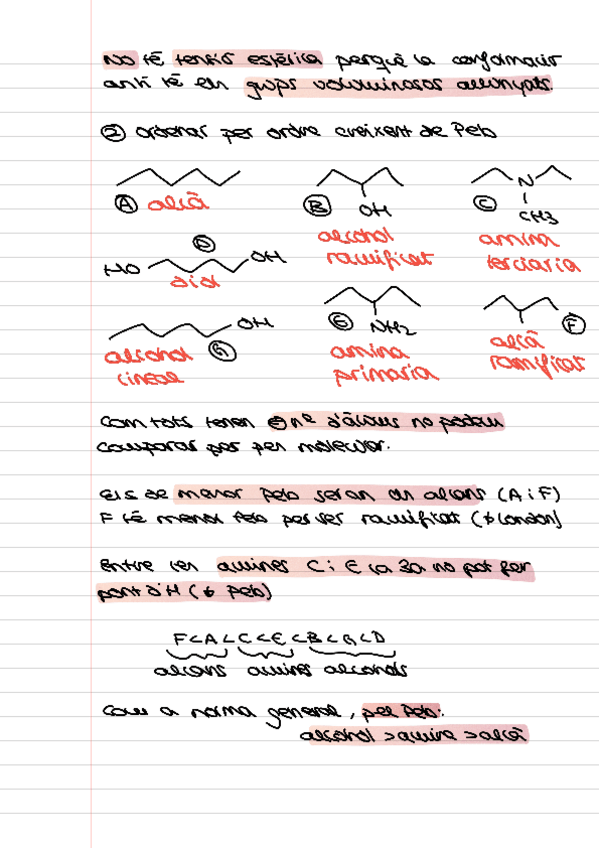 No té tensió estèrica perquè la conformació
anti té els grups voluminosos allunyats.
② ordenar per ordre creixent de Peb
A alcà
B OH alcohol ramificat
C N CH3 amina terciaria
D HO OH diol
G OH alcohol lineal
E NH2 amina primaria
F alcà ramificat
Com tots tenen = nº d'àtoms no podem
comparar per pes molecular.
Els de menor Peb seran els alcans (A i F)
F té menor Peb per ser ramificat (↓London)
Entre les amines C i E la 3a no pot fer
pont d'H (↓ Peb)
F<A<C<E<B<G<D
alcans amines alcohols
Com a norma general, pel Peb:
alcohol >amina >alcà